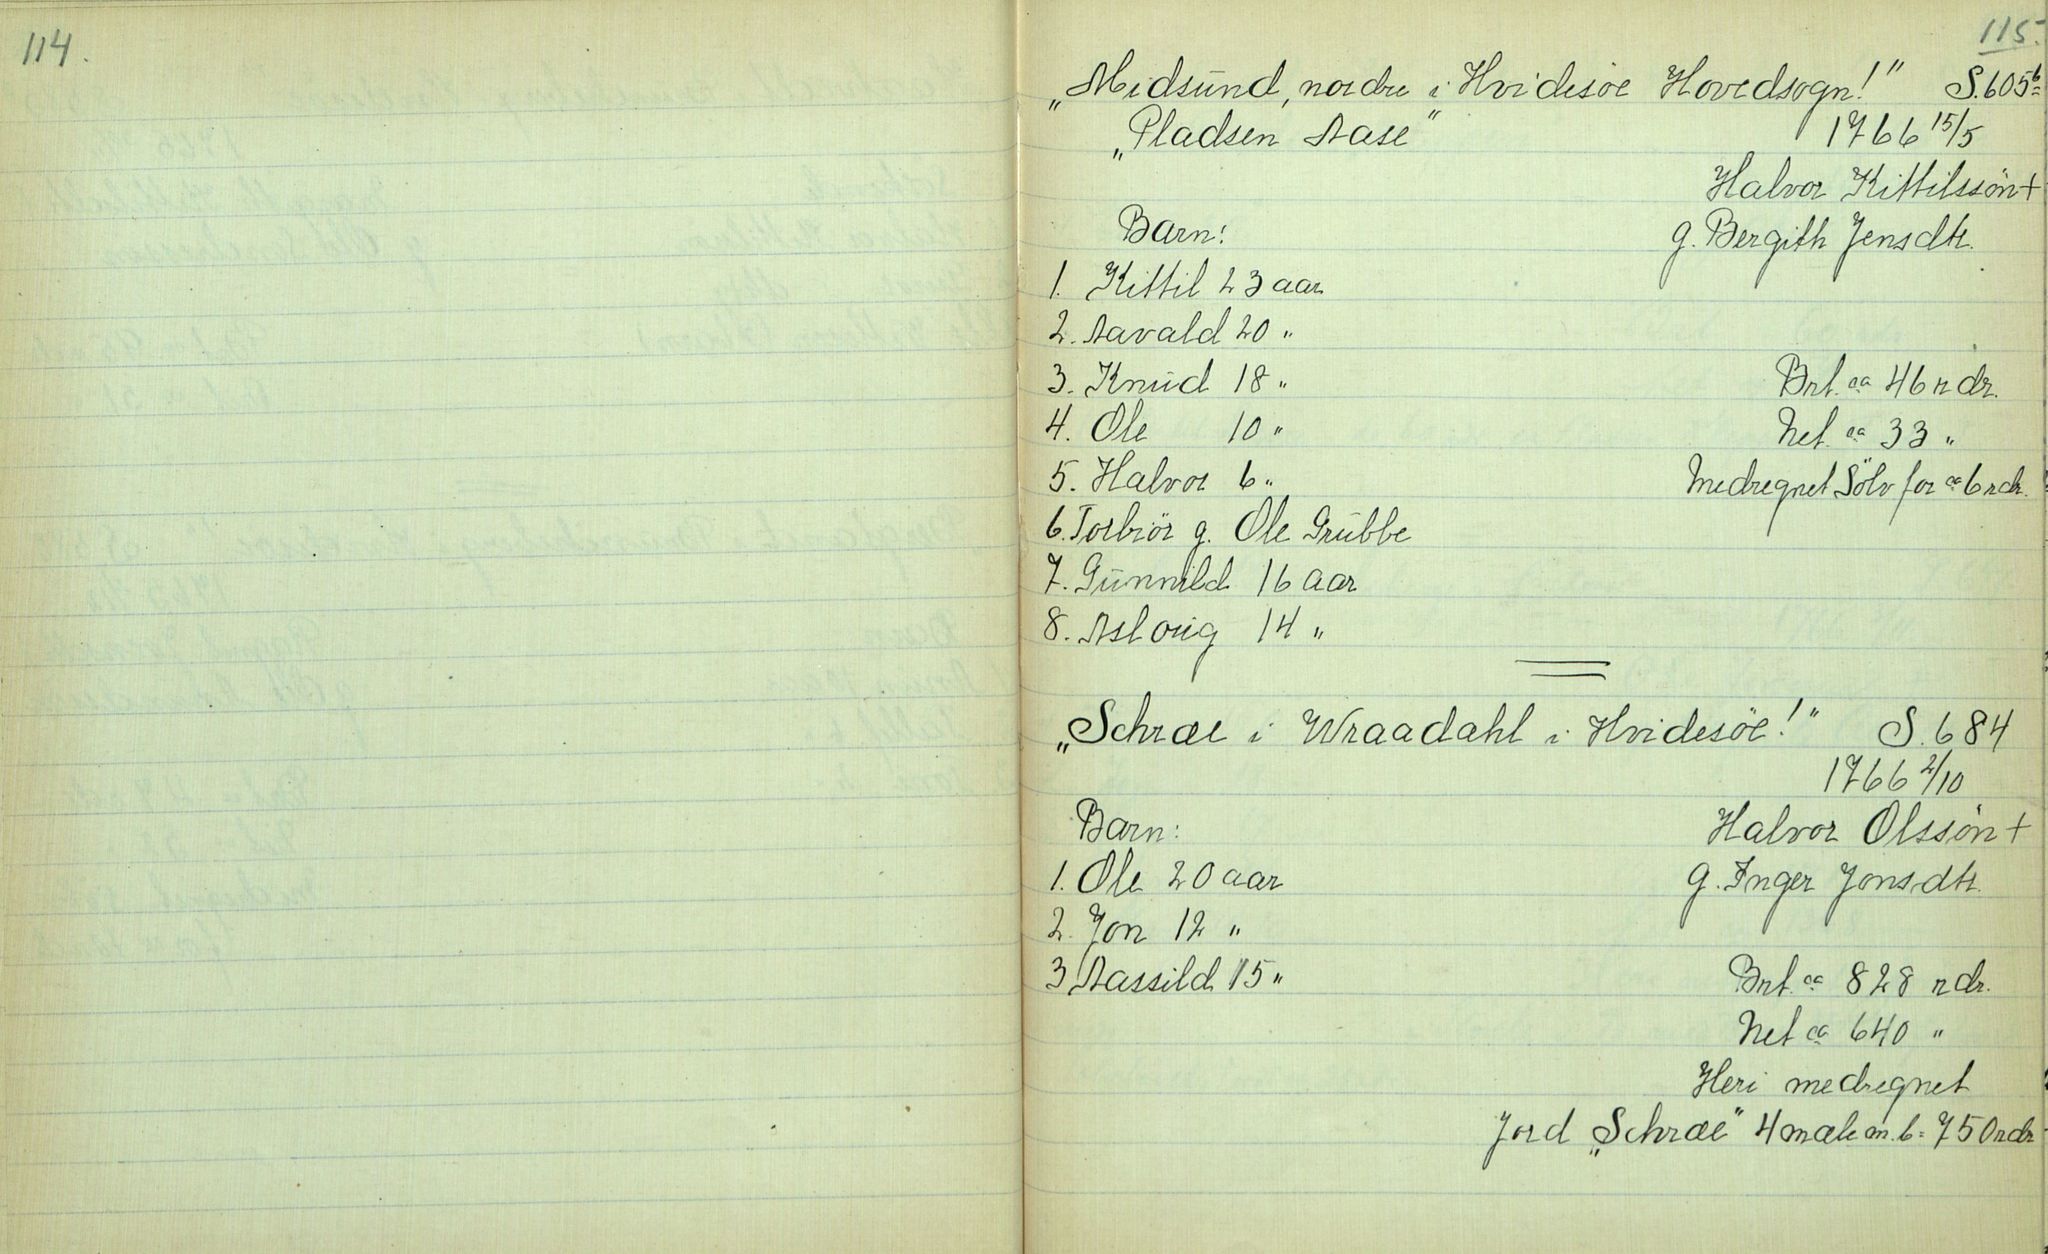 114.
115.
„Midsund, nordre i Hvidesöe Hovedsogn!" S. 605b=
„Pladsen Aase" 1766 15/5
Halvor Kittilssön +
Barn: g. Bergith Jensdtr.
1. Kittil 23 aar
2. Aavald 20 "
3. Knud 18 " Brt. ca 46 rdr.
4. Ole 10 " Net. ca 33 "
5. Halvor 6 " Medregnet Sölv for ca 6 rdr.
6. Torbiör g. Ole Grubbe
7. Gunnild 16 aar
8. Asloug 14 "
„Schræe i Wraadahl i Hvidesöe!" S. 684
1766 2/10
Barn: Halvor Olssön +
1. Ole 20 aar g. Inger Jonsdtr.
2. Jon 12 "
3 Aassild 15 " Brt. ca 828 rdr.
Net ca 640 "
Heri medregnet
Jord „Schræe" 4 mæle m. b = 750 rdr